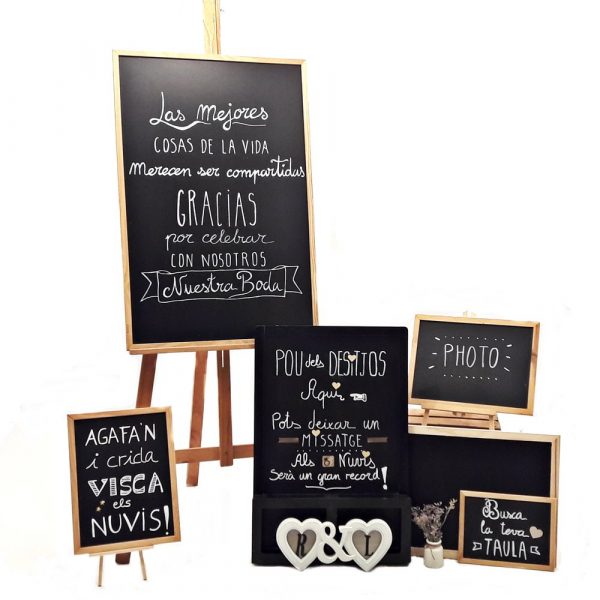 Las Mejores
COSAS DE LA VIDA
merecen ser compartidas
GRACIAS
por celebrar
CON NOSOTROS
Nuestra Boda
POU dels DESITJOS
Aquí
Pots deixar un
MISSATGE
Als Nuvis
Serà un gran record!
R & I
PHOTO
AGAFA'N
i crida
VISCA
els
NUVIS!
Busca
la teva
TAULA